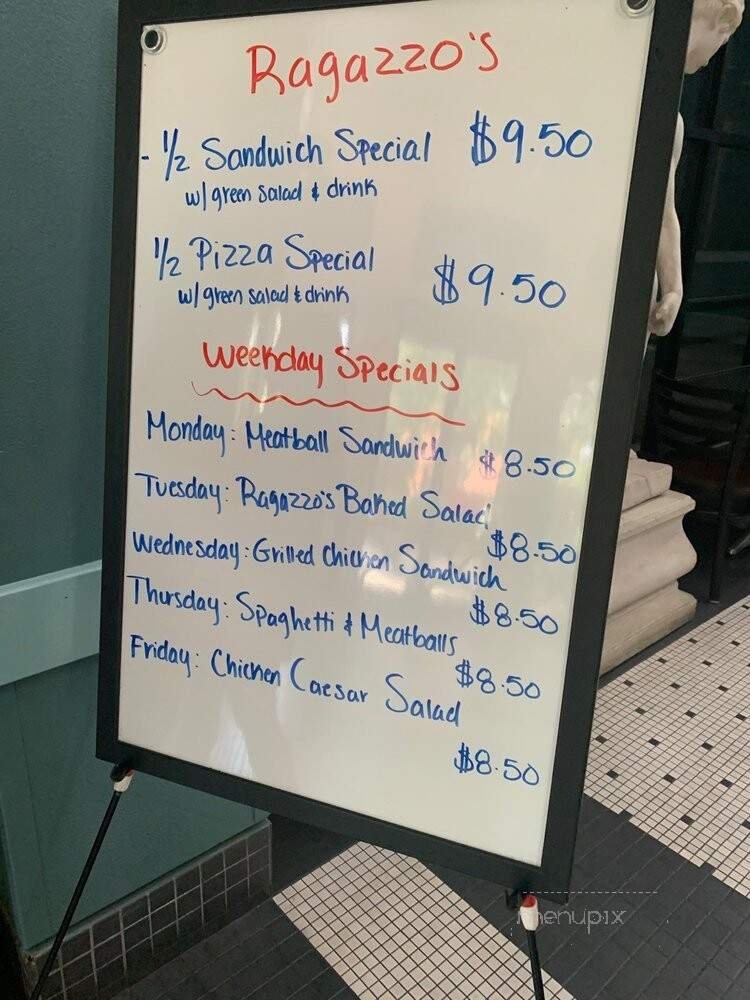 Ragazzo's
- 1/2 Sandwich Special $9.50
w/ green salad & drink
1/2 Pizza Special
$9.50
w/ green salad & drink
Weekday Specials
Monday: Meatball Sandwich $8.50
Tuesday: Ragazzo's Baked Salad
$8.50
Wednesday: Grilled Chicken Sandwich
$8.50
Thursday: Spaghetti & Meatballs
$8.50
Friday: Chicken Caesar Salad
$8.50
menupix